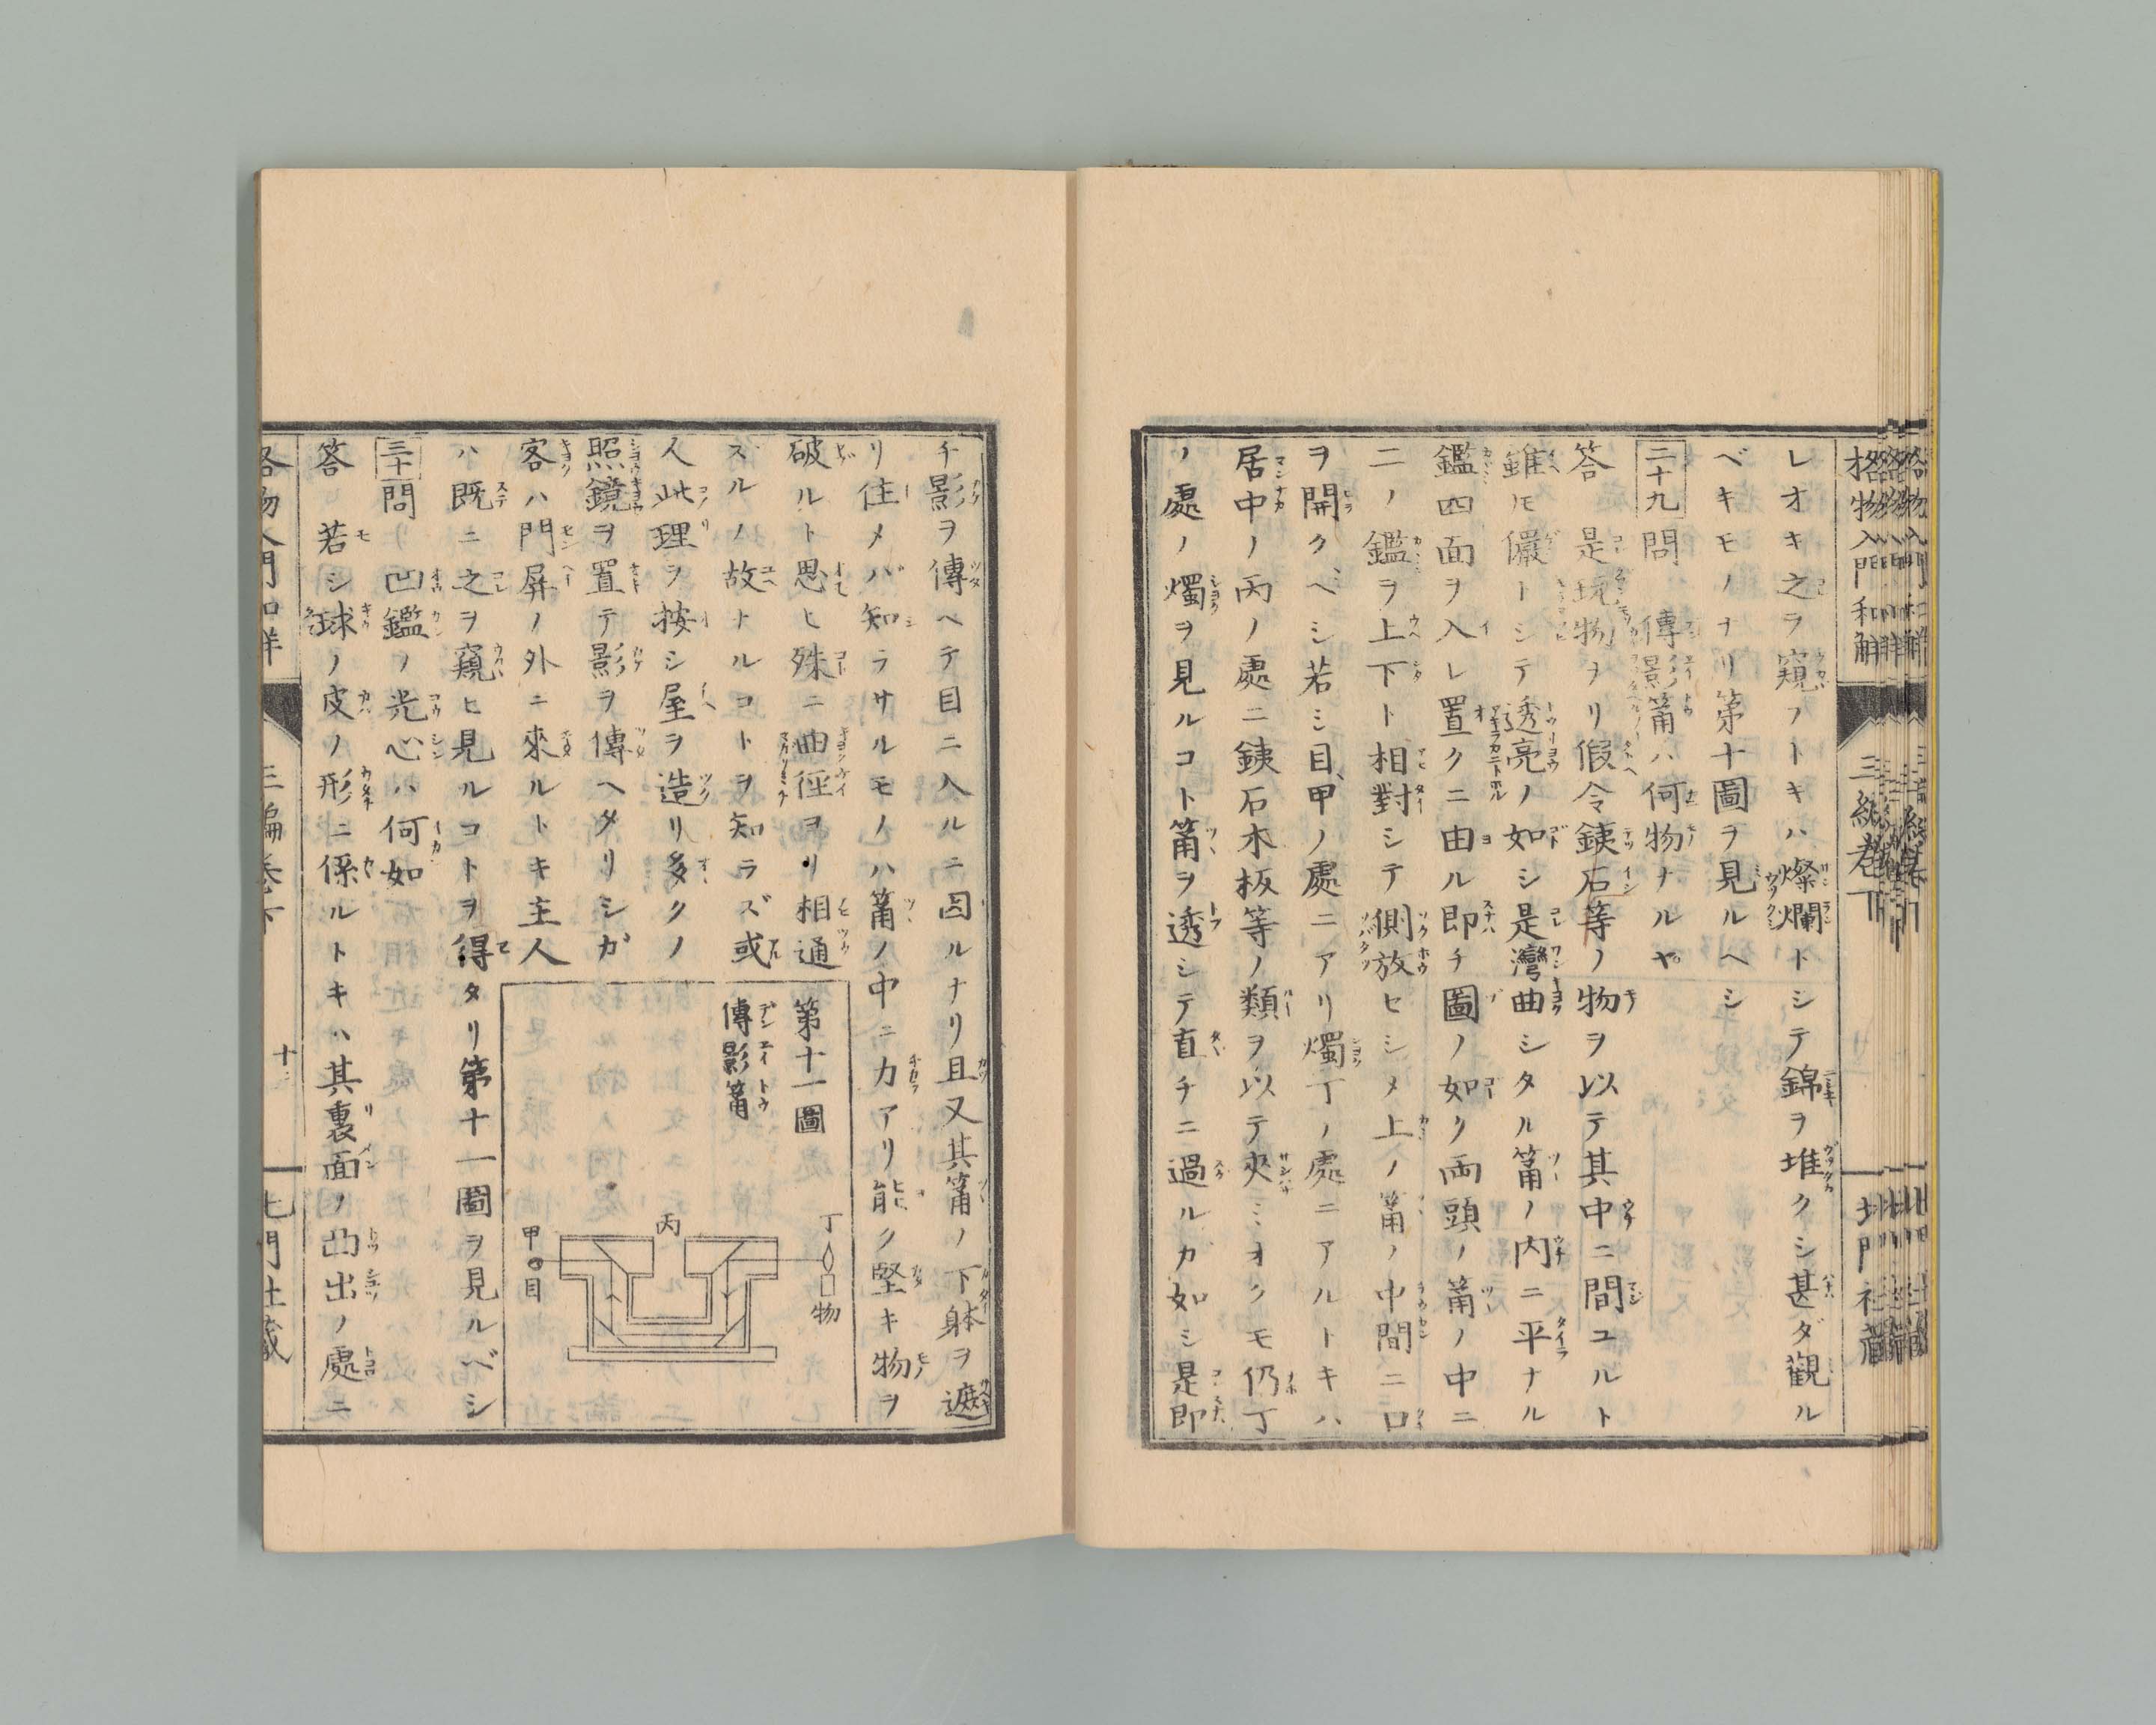 格物入門和解
三編卷下
北門社藏
レオキ之ヲ窺フトキハ燦爛トシテ錦ヲ堆クシ甚ダ觀ル
ベキモノナリ第十圖ヲ見ルヘシ
二十九問 傳影筩ハ何物ナルヤ
答 是玩物ナリ假令鐵石等ノ物ヲ以テ其中ニ間ユルト
雖モ儼トシテ透亮ノ如シ是灣曲シタル筩ノ内ニ平ナル
鑑四面ヲ入レ置クニ由ル即チ圖ノ如ク両頭ノ筩ノ中ニ
二ノ鑑ヲ上下ト相對シテ側放セシメ上ノ筩ノ中間ニ口
ヲ開クヘシ若シ目甲ノ處ニアリ燭丁ノ處ニアルトキハ
居中ノ丙ノ處ニ鐵石木板等ノ類ヲ以テ夾ミオクモ仍丁
ノ處ノ燭ヲ見ルコト筩ヲ透シテ直チニ過ルカ如シ是即
チ影ヲ傳ヘテ目ニ入ルニ因ルナリ且又其筩ノ下躰ヲ遮
リ住メバ知ラサルモノハ筩ノ中ニ力アリ能ク堅キ物ヲ
破ルト思ヒ殊ニ曲徑ヨリ相通
ズルノ故ナルコトヲ知ラズ或
人此理ヲ按シ屋ヲ造リ多クノ
照鏡ヲ置テ影ヲ傳ヘタリシガ
客ハ門屏ノ外ニ來ルトキ主人
ハ既ニ之ヲ窺ヒ見ルコトヲ得タリ第十一圖ヲ見ルベシ
第十一圖
傳影筩
丁
物
丙
甲
目
三十問 凹鑑ノ光心ハ何如
答 若シ球ノ皮ノ形ニ係ルトキハ其裏面ノ凸出ノ處ニ
格物入門和解
三編卷下
十二
北門社藏